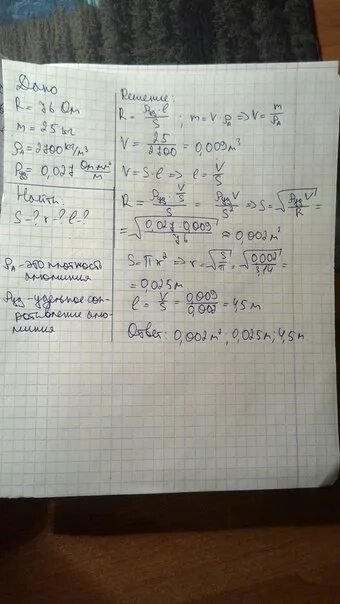 Дано
R = 76 Ом
m = 25 кг
ρд = 2700 кг/м³
ρуд = 0,027 Ом·мм²/м
Найти
S - ? r - ? l - ?
ρд - это плотность
алюминия
ρуд - удельное соп-
ротивление алю-
миния
Решение:
R = ρуд·l/S ; m = V·ρд => V = m/ρд
V = 25/2700 = 0,009 м³
V = S·l => l = V/S
R = ρуд·V/S/S = ρуд V/S² => S = √ρуд V/R =
= √0,027·0,009/76 ≈ 0,002 м²
S = πr² => r = √S/π = √0,002/3,14 =
= 0,025 м
l = V/S = 0,009/0,002 = 4,5 м
Ответ: 0,002 м²; 0,025 м; 4,5 м